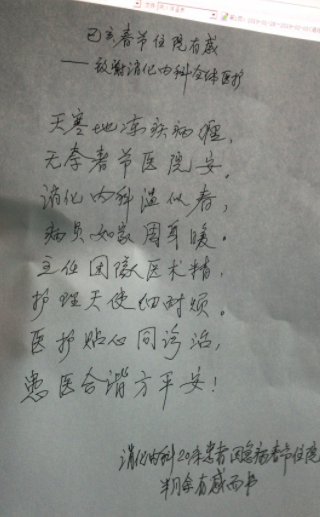 己亥春节住院有感
——致谢消化内科全体医护
天寒地冻疾病缠，
无奈春节医院安。
消化内科温似春，
病员如家周身暖。
主任团队医术精，
护理天使细耐烦。
医护贴心同诊治，
患医合谐方平安！
消化内科20床患者因急病春节住院
半月余有感而书